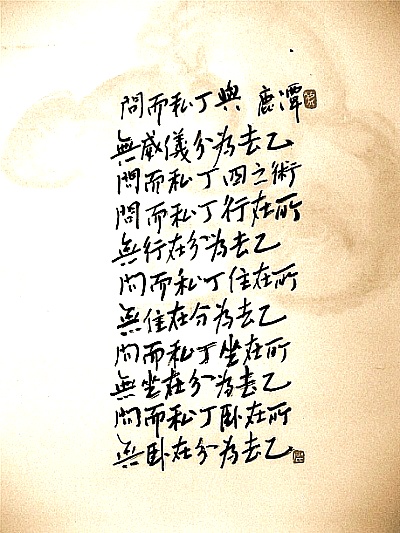 問而私丁與 鹿潭
無威儀分為去乙
問而私丁四之術
問而私丁行在所
無行在分為去乙
問而私丁住在所
無住在分為去乙
問而私丁坐在所
無坐在分為去乙
問而私丁卧在所
無卧在分為去乙